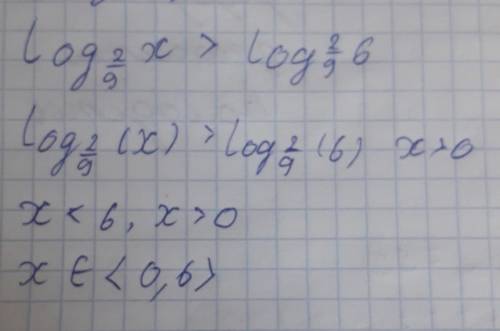 log_{2/9} x > log_{2/9} 6
log_{2/9} (x) > log_{2/9} (6) x > 0
x < 6, x > 0
x ∈ <0,6>